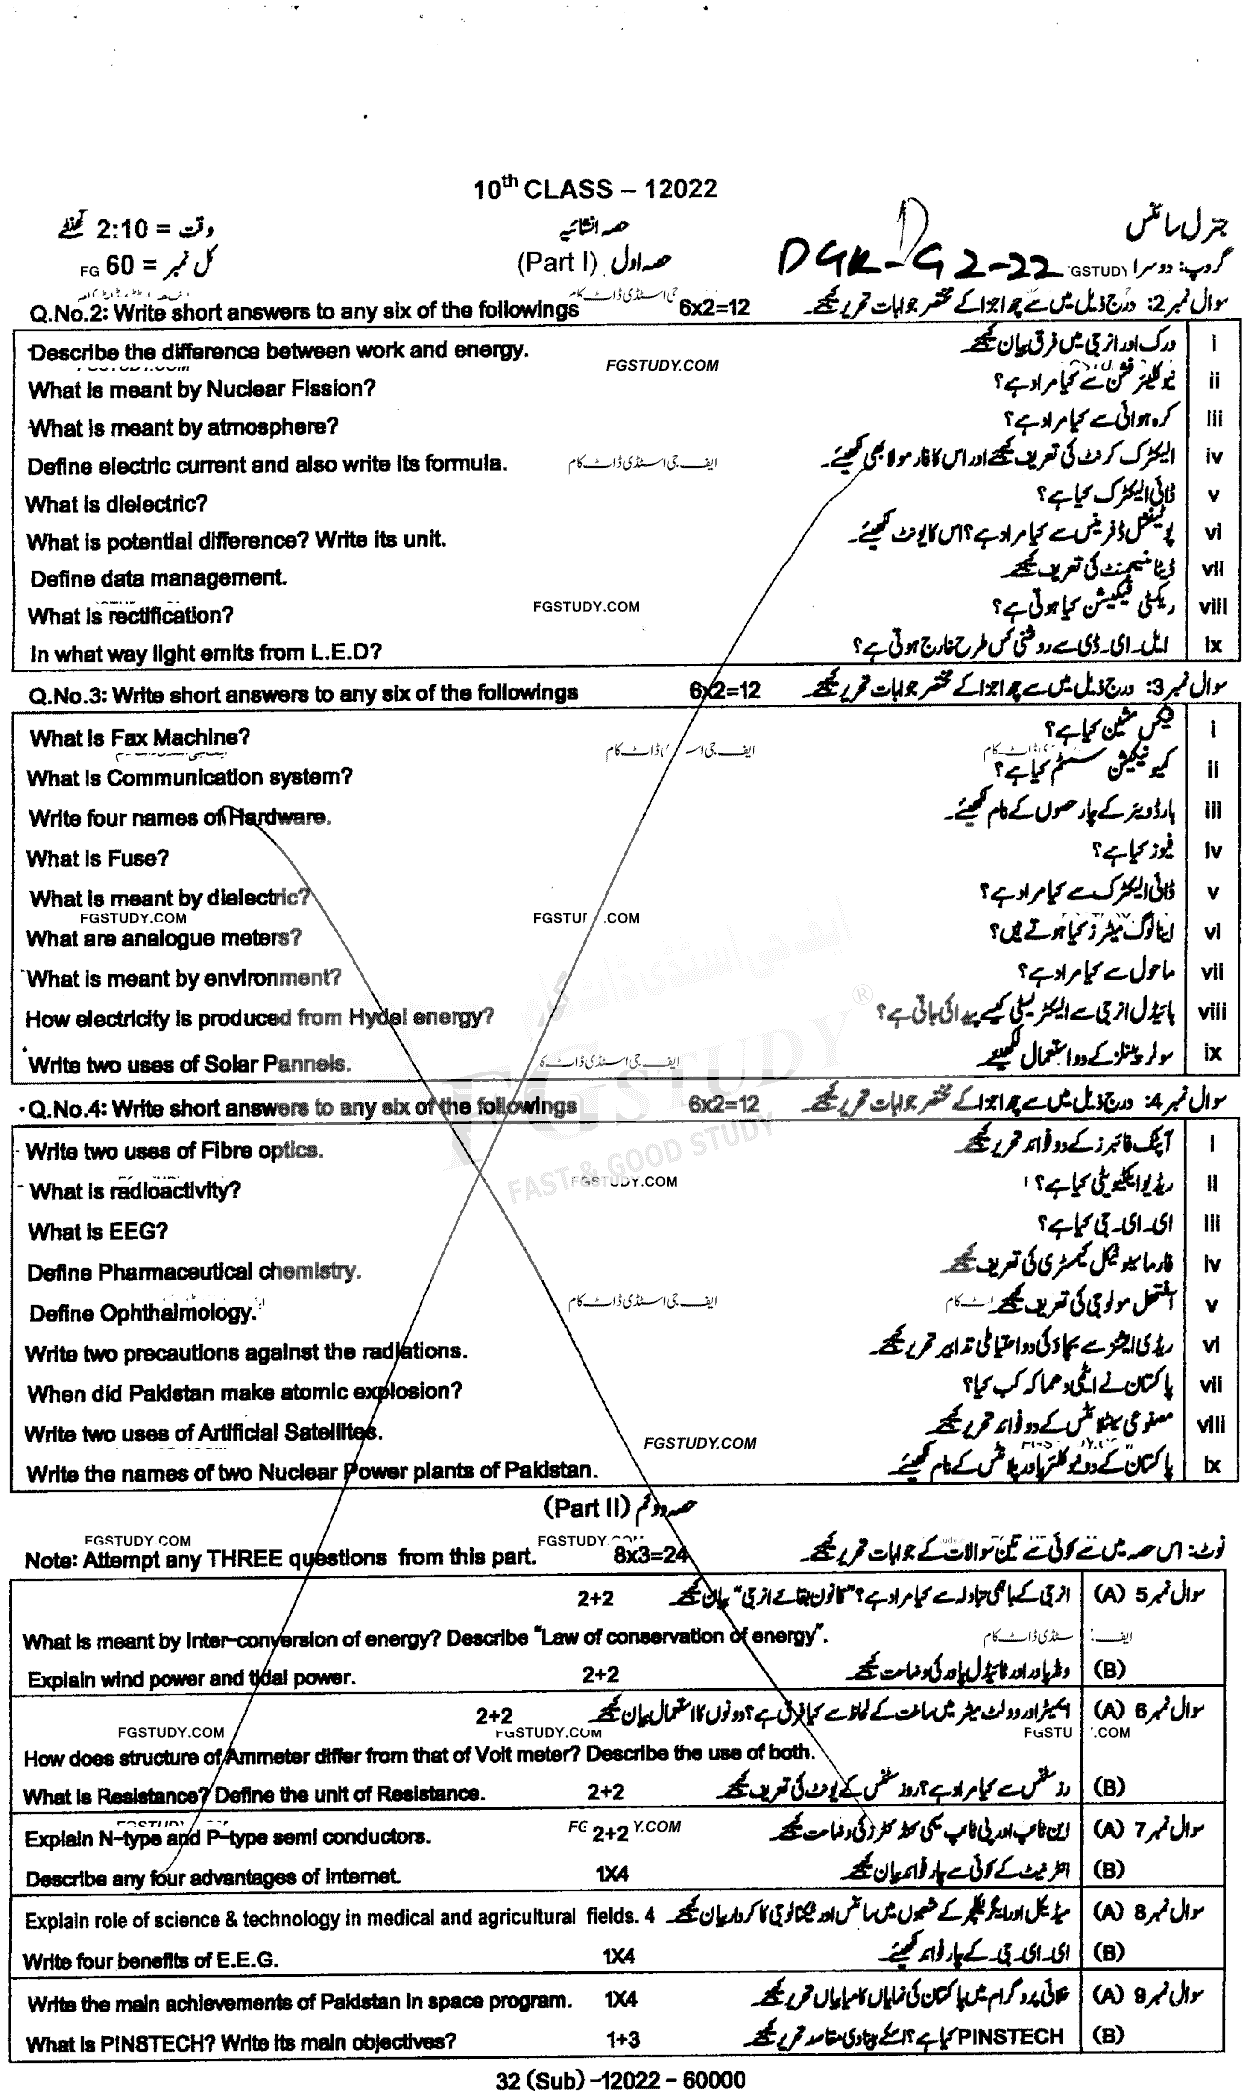 10th CLASS – 12022
وقت = 2:10 گھنٹے
حصہ انشائیہ
جنرل سائنس
کل نمبر = 60 FG
حصہ اول (Part I)
DGK-G2-22
GSTUDY
گروپ: دوسرا
Q.No.2: Write short answers to any six of the followings 6x2=12 سوال نمبر 2: درج ذیل میں سے چھ اجزا کے مختصر جوابات تحریر کیجئے۔
Describe the difference between work and energy. FGSTUDY.COM ورک اور انرجی میں فرق بیان کیجئے i
What is meant by Nuclear Fission? نیوکلیئر فشن سے کیا مراد ہے؟ ii
What is meant by atmosphere? کرہ ہوائی سے کیا مراد ہے؟ iii
Define electric current and also write its formula. ایف جی اسٹڈی ڈاٹ کام الیکٹرک کرنٹ کی تعریف کیجئے اور اس کا فارمولا بھی لکھیئے۔ iv
What is dielectric? ڈائی الیکٹرک کیا ہے؟ v
What is potential difference? Write its unit. پوٹینشل ڈفرینس سے کیا مراد ہے؟ اس کا یونٹ لکھیئے۔ vi
Define data management. ڈیٹا مینجمنٹ کی تعریف کیجئے vii
What is rectification? FGSTUDY.COM ریکٹی فیکیشن کیا ہوتی ہے؟ viii
In what way light emits from L.E.D? ایل۔ای۔ڈی سے روشنی کس طرح خارج ہوتی ہے؟ ix
Q.No.3: Write short answers to any six of the followings 6x2=12 سوال نمبر 3: درج ذیل میں سے چھ اجزا کے مختصر جوابات تحریر کیجئے۔
What is Fax Machine? فیکس مشین کیا ہے؟ i
What is Communication system? کمیونیکیشن سسٹم کیا ہے؟ ii
Write four names of Hardware. ہارڈ ویئر کے چار حصوں کے نام لکھیئے۔ iii
What is Fuse? فیوز کیا ہے؟ iv
What is meant by dielectric? ڈائی الیکٹرک سے کیا مراد ہے؟ v
FGSTUDY.COM
What are analogue meters? اینالوگ میٹرز کیا ہوتے ہیں؟ vi
What is meant by environment? ماحول سے کیا مراد ہے؟ vii
How electricity is produced from Hydel energy? ہائیڈل انرجی سے الیکٹریسٹی کیسے پیدا کی جاتی ہے؟ viii
Write two uses of Solar Pannels. ایف جی اسٹڈی ڈاٹ کام سولر پینلز کے دو استعمال لکھیئے ix
FG STUDY ®
FAST & GOOD STUDY
Q.No.4: Write short answers to any six of the followings 6x2=12 سوال نمبر 4: درج ذیل میں سے چھ اجزا کے مختصر جوابات تحریر کیجئے۔
Write two uses of Fibre optics. آپٹک فائبرز کے دو فوائد تحریر کیجئے۔ i
What is radioactivity? FGSTUDY.COM ریڈیو ایکٹیویٹی کیا ہے؟ ii
What is EEG? ای۔ای۔جی کیا ہے؟ iii
Define Pharmaceutical chemistry. فارماسیوٹیکل کیمسٹری کی تعریف کیجئے۔ iv
Define Ophthalmology. ایف جی اسٹڈی ڈاٹ کام آفتھل مولوجی کی تعریف کیجئے v
Write two precautions against the radiations. ریڈی ایشنز سے بچاؤ کی دو احتیاطی تدابیر تحریر کیجئے۔ vi
When did Pakistan make atomic explosion? پاکستان نے ایٹمی دھماکہ کب کیا؟ vii
Write two uses of Artificial Satellites. مصنوعی سیٹلائٹس کے دو فوائد تحریر کیجئے viii
FGSTUDY.COM
Write the names of two Nuclear Power plants of Pakistan. پاکستان کے دو نیوکلیئر پاور پلانٹس کے نام لکھیئے۔ ix
حصہ دوئم (Part II)
FGSTUDY.COM
Note: Attempt any THREE questions from this part. 8x3=24 نوٹ: اس حصہ میں سے کوئی سے تین سوالات کے جوابات تحریر کیجئے۔
2+2 انرجی کے باہمی تبادلہ سے کیا مراد ہے؟ "قانون بقائے انرجی" بیان کیجئے سوال نمبر 5 (A)
What is meant by Inter-conversion of energy? Describe "Law of conservation of energy".
Explain wind power and tidal power. 2+2 ونڈ پاور اور ٹائیڈل پاور کی وضاحت کیجئے (B)
2+2 ایمیٹر اور وولٹ میٹر میں ساخت کے لحاظ سے کیا فرق ہے؟ دونوں کا استعمال بیان کیجئے سوال نمبر 6 (A)
FGSTUDY.COM FGSTUDY.COM
How does structure of Ammeter differ from that of Volt meter? Describe the use of both.
What is Resistance? Define the unit of Resistance. 2+2 رزسٹنس سے کیا مراد ہے؟ رزسٹنس کے یونٹ کی تعریف کیجئے (B)
Explain N-type and P-type semi conductors. 2+2 این ٹائپ اور پی ٹائپ سیمی کنڈکٹرز کی وضاحت کیجئے سوال نمبر 7 (A)
Describe any four advantages of Internet. 1X4 انٹرنیٹ کے کوئی سے چار فوائد بیان کیجئے (B)
Explain role of science & technology in medical and agricultural fields. 4 میڈیکل اور ایگریکلچر کے شعبوں میں سائنس اور ٹیکنالوجی کا کردار بیان کیجئے سوال نمبر 8 (A)
Write four benefits of E.E.G. 1X4 ای۔ای۔جی کے چار فوائد لکھیئے (B)
Write the main achievements of Pakistan in space program. 1X4 خلائی پروگرام میں پاکستان کی نمایاں کامیابیاں تحریر کیجئے سوال نمبر 9 (A)
What is PINSTECH? Write its main objectives? 1+3 PINSTECH کیا ہے؟ اسکے بنیادی مقاصد تحریر کیجئے (B)
32 (Sub) -12022 - 60000